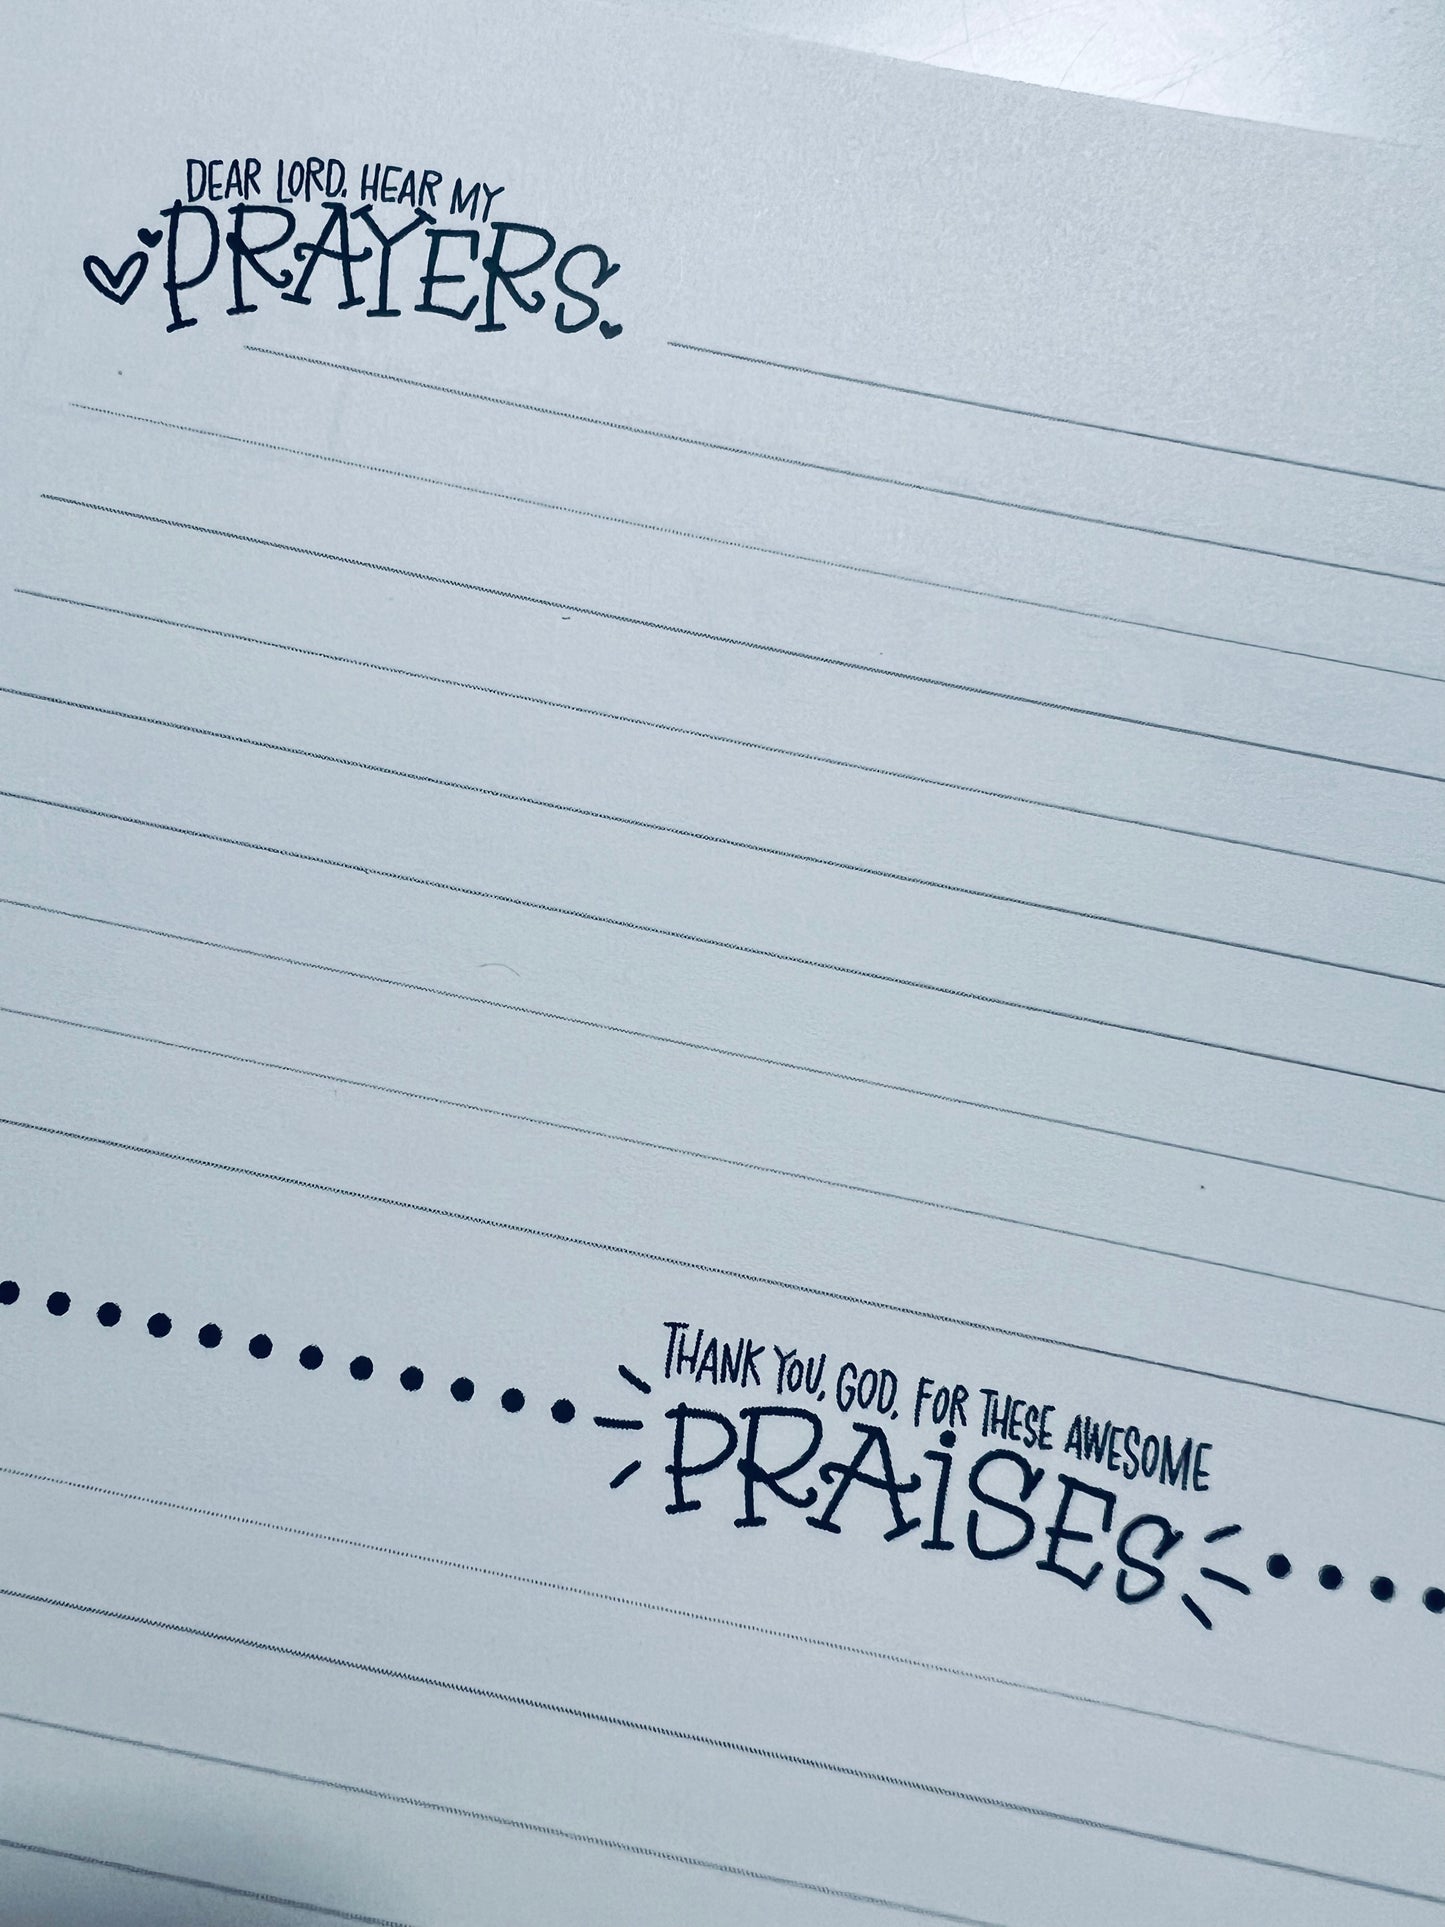 DEAR LORD, HEAR MY
PRAYERS.
THANK YOU, GOD, FOR THESE AWESOME
PRAiSES